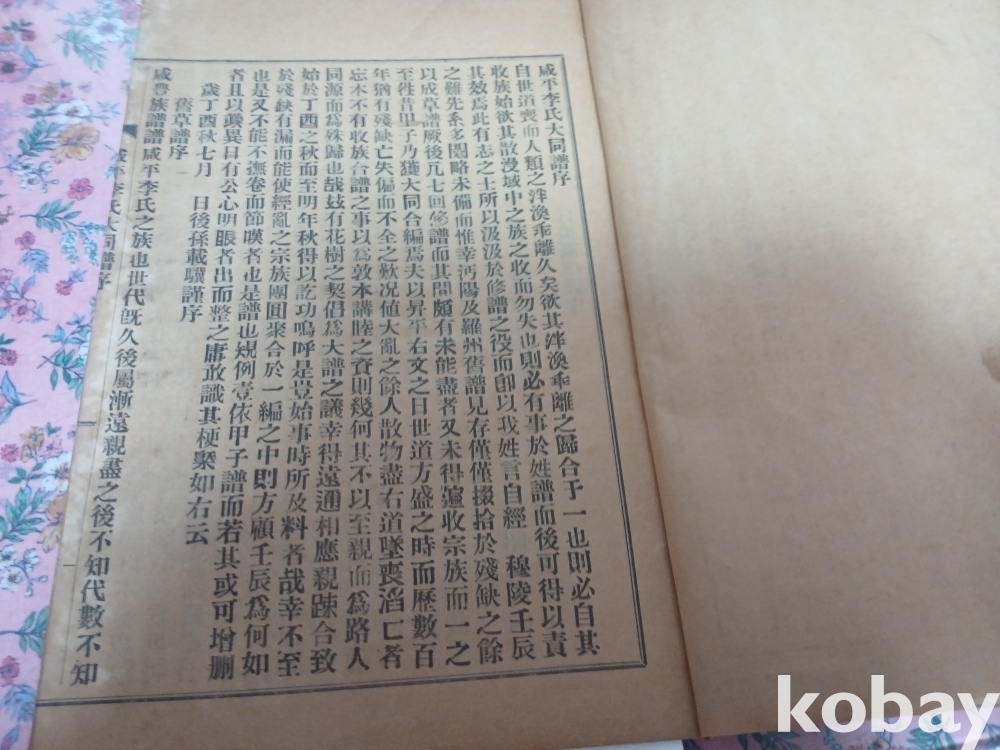 咸平李氏大同譜序
自世道喪而人類之泮渙乖離久矣欲其泮渙乖離之歸合于一也則必自其
收族始欲其散漫域中之族之收而勿失也則必有事於姓譜而後可得以責
其效焉此有志之士所以汲汲於修譜之役而卽以我姓言自經 穆陵壬辰
之難先系多闕略未備而惟幸沔陽及羅州舊譜見存僅僅掇拾於殘缺之餘
以成草譜厥後凡七回修譜而其間頗有未能盡者又未得遍收宗族而一之
至徃昔甲子乃獲大同合編焉夫以昇平右文之日世道方盛之時而歷數百
年猶有殘缺亡失偏而不全之歎况値大亂之餘人散物盡右道墜喪滔亡者
忘本不有收族合譜之事以爲敦本講睦之資則幾何其不以至親而爲路人
同源而爲殊歸也哉玆有花樹之契倡爲大譜之議幸得遠邇相應親踈合致
始於丁酉之秋而至明年秋得以訖功嗚呼是豈始事時所及料者哉幸不至
於殘缺有漏而能使經亂之宗族團圓聚合於一編之中則方顧壬辰爲何如
也是又不能不撫卷而節嘆者也是譜也規例壹依甲子譜而若其或可增刪
者且以竢異日有公心明眼者出而整之庸敢識其梗槩如右云
歲丁酉秋七月 日後孫載驥謹序
舊草譜序
咸豐族譜譜咸平李氏之族也世代旣久後屬漸遠親盡之後不知代數不知
咸平李氏大同譜序
kobay